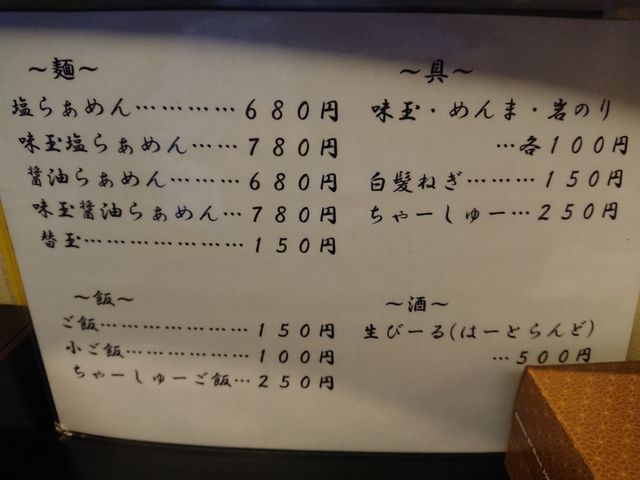 ～麺～
塩らぁめん…………６８０円
味玉塩らぁめん……７８０円
醤油らぁめん………６８０円
味玉醤油らぁめん…７８０円
替玉…………………１５０円
～飯～
ご飯…………………１５０円
小ご飯………………１００円
ちゃーしゅーご飯…２５０円
～具～
味玉・めんま・岩のり
…各１００円
白髪ねぎ………１５０円
ちゃーしゅー…２５０円
～酒～
生びーる(はーとらんど)
…５００円